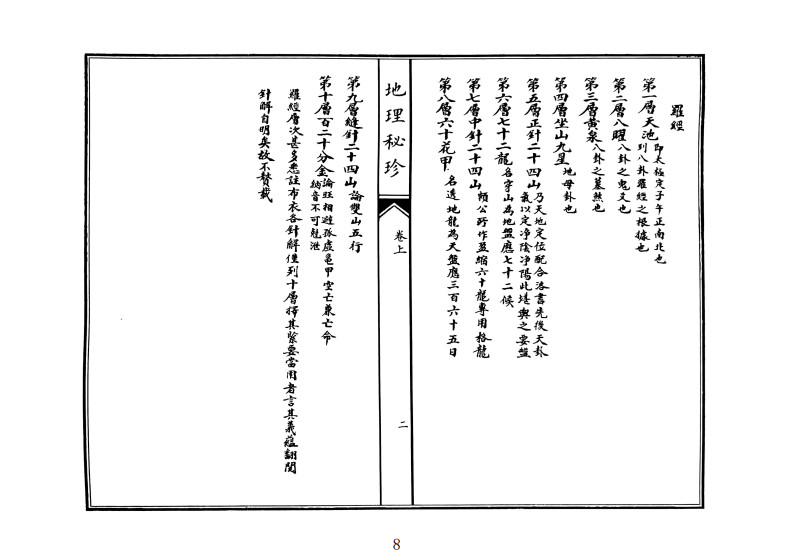 羅經
第一層天池即太極定子午正南北也
到八卦羅經之根據也
第二層八曜八卦之鬼爻也
第三層黃泉八卦之墓煞也
第四層坐山九星地母卦也
第五層正針二十四山乃天地定位配合洛書先後天卦
氣以定淨陰淨陽此堪輿之要盤
第六層七十二龍名穿山為地盤應七十二候
第七層中針二十四山賴公所作盈縮六十龍專用格龍
第八層六十花甲名透地龍為天盤應三百六十五日
地理秘珍
卷上
二
第九層縫針二十四山論雙山五行
第十層百二十分金論旺相避孤虛龜甲空亡兼亡命
納音不可尅泄
羅經層次甚多悉註布衣各針解僅列十層擇其緊要當用者言其義蘊翻閱
針解自明矣故不贅載
8